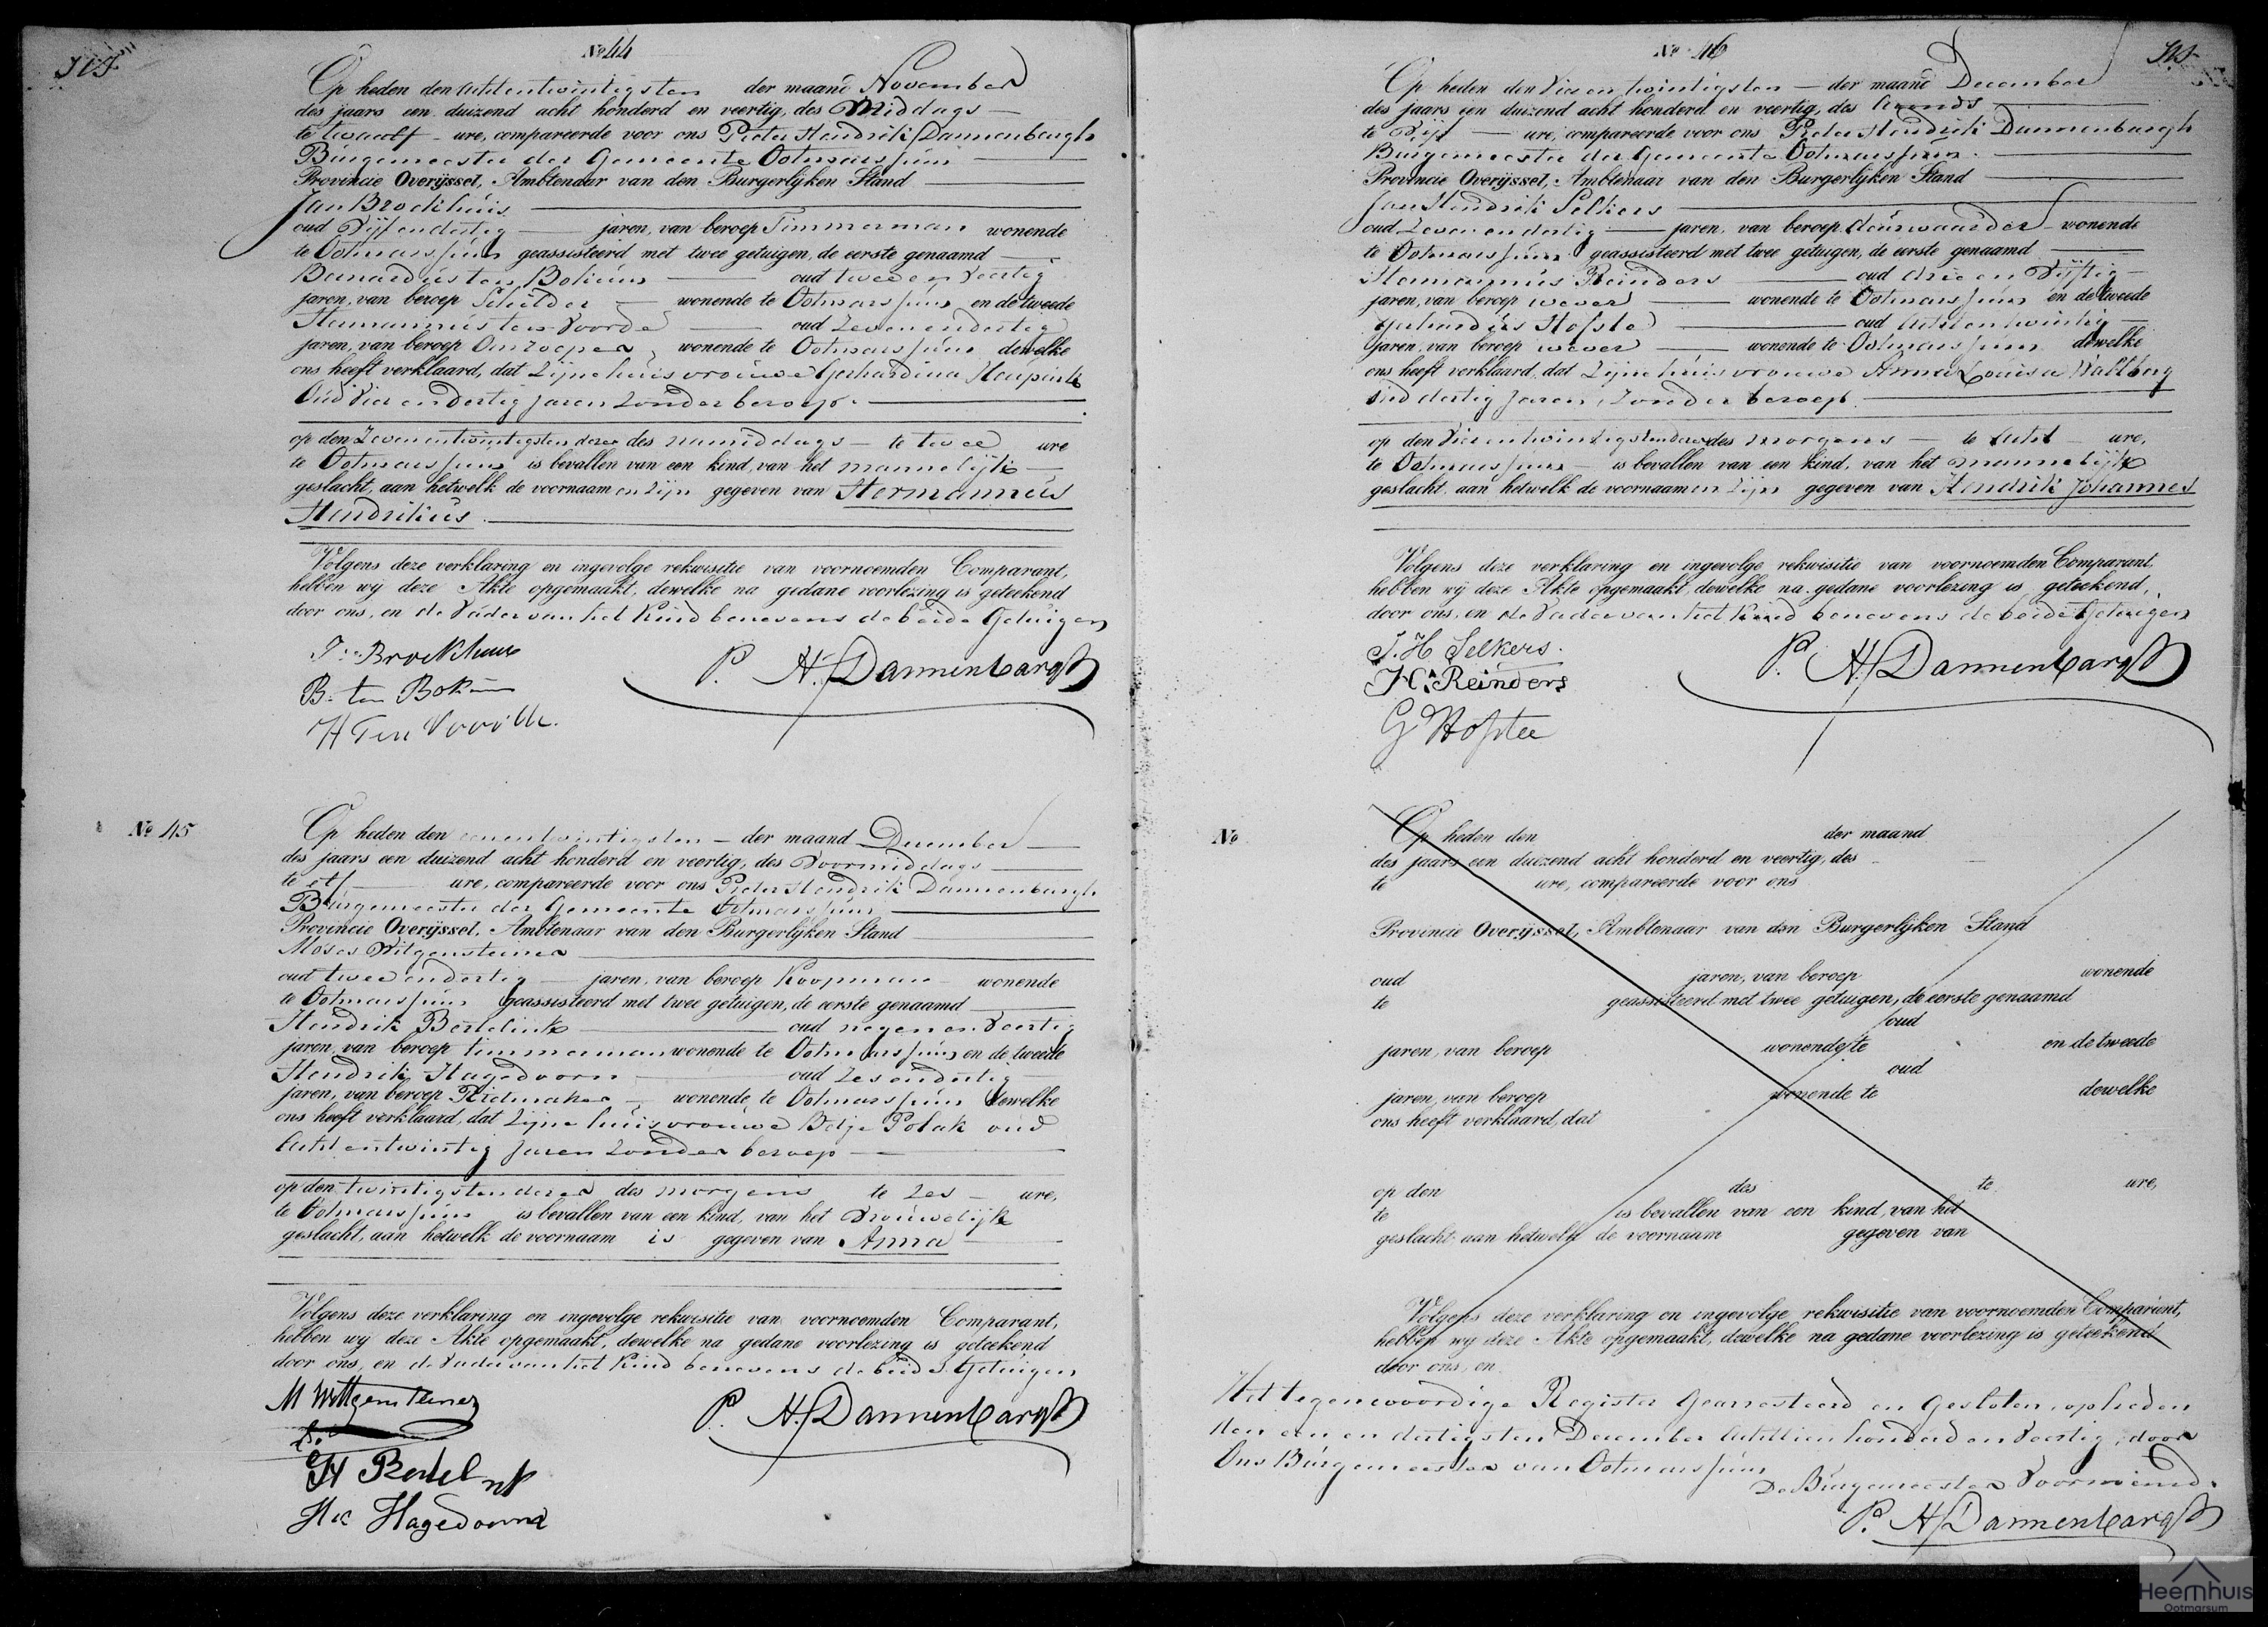 № 44
Op heden den Achtentwintigsten der maand November
des jaars een duizend acht honderd en veertig, des Middags
te twaalf ure, compareerde voor ons Pieter Hendrik Dannenbargh
Burgemeester der Gemeente Ootmarssum
Provincie Overijssel, Ambtenaar van den Burgerlijken Stand
Jan Broekhuis
oud Vijfendertig jaren, van beroep Timmerman wonende
te Ootmarssum geassisteerd met twee getuigen, de eerste genaamd
Bernardus ten Bokum oud twee en Veertig
jaren, van beroep Schilder wonende te Ootmarssum en de tweede
Hermannus ten Voorde oud Zevenendertig
jaren, van beroep Omroeper wonende te Ootmarssum dewelke
ons heeft verklaard, dat Zijne huisvrouwe Gerhardina
Oud Vier en dertig jaren Zonder beroep
op den Zevenentwintigsten dezer des namiddags te twee ure
te Ootmarssum is bevallen van een kind, van het mannelijk
geslacht, aan hetwelk de voornaamen zijn gegeven van Hermannus
Hendrikus
Volgens deze verklaring en ingevolge rekwisitie van voornoemden Comparant,
hebben wij deze Akte opgemaakt, dewelke na gedane voorlezing is geteekend
door ons, en de Vader van het Kind benevens de beide Getuigen
J. Broekhuis
B. ten Bokum
H Ten Voorde
P. H. Dannenbargh
№ 45
Op heden den eenentwintigsten der maand December
des jaars een duizend acht honderd en veertig, des Voormiddags
te elf ure, compareerde voor ons Pieter Hendrik Dannenbargh
Burgemeester der Gemeente Ootmarssum
Provincie Overijssel, Ambtenaar van den Burgerlijken Stand
Moses Witgensteiner
oud twee endertig jaren, van beroep Koopman wonende
te Ootmarssum geassisteerd met twee getuigen, de eerste genaamd
Hendrik Bertelink oud negen en Veertig
jaren, van beroep timmerman wonende te Ootmarssum en de tweede
Hendrik Hagedoorn oud Zesendertig
jaren, van beroep Rietmaker wonende te Ootmarssum dewelke
ons heeft verklaard, dat Zijne huisvrouwe Betje Polak oud
Achtentwintig jaren Zonder beroep
op den twintigsten dezer des morgens te Zes ure,
te Ootmarssum is bevallen van een kind, van het Vrouwelijk
geslacht, aan hetwelk de voornaam is gegeven van Anna
Volgens deze verklaring en ingevolge rekwisitie van voornoemden Comparant,
hebben wij deze Akte opgemaakt, dewelke na gedane voorlezing is geteekend
door ons, en de Vader van het Kind benevens de beide Getuigen
M Wittgensteiner
H Bertelink
Hk Hagedoorn
P. H. Dannenbargh
№ 46
Op heden den Vier en twintigsten der maand December
des jaars een duizend acht honderd en veertig, des Avonds
te Vijf ure, compareerde voor ons Pieter Hendrik Dannenbargh
Burgemeester der Gemeente Ootmarssum
Provincie Overijssel, Ambtenaar van den Burgerlijken Stand
Jan Hendrik Selkers
oud Zeven en dertig jaren, van beroep deurwaarder wonende
te Ootmarssum geassisteerd met twee getuigen, de eerste genaamd
Hermannus Reinders oud drie en Vijftig
jaren, van beroep wever wonende te Ootmarssum en de tweede
Gerhardus Hofste oud Achtentwintig
jaren, van beroep wever wonende te Ootmarssum dewelke
ons heeft verklaard, dat Zijne huisvrouwe Anna Louisa
oud dertig jaren, Zonder beroep
op den Vierentwintigsten dezer des morgens te Acht ure,
te Ootmarssum is bevallen van een kind, van het mannelijk
geslacht, aan hetwelk de voornaamen zijn gegeven van Hendrik Johannes
Volgens deze verklaring en ingevolge rekwisitie van voornoemden Comparant,
hebben wij deze Akte opgemaakt, dewelke na gedane voorlezing is geteekend,
door ons, en de Vader van het Kind benevens de beide Getuigen
J. H Selkers.
H. Reinders
G Hofste
P. H. Dannenbargh
№
Op heden den der maand
des jaars een duizend acht honderd en veertig, des
te ure, compareerde voor ons
Provincie Overijssel, Ambtenaar van den Burgerlijken Stand
oud jaren, van beroep wonende
te geassisteerd met twee getuigen, de eerste genaamd
oud
jaren, van beroep wonende te en de tweede
oud
jaren, van beroep wonende te dewelke
ons heeft verklaard, dat
op den des te ure,
te is bevallen van een kind, van het
geslacht, aan hetwelk de voornaam gegeven van
Volgens deze verklaring en ingevolge rekwisitie van voornoemden Comparant,
hebben wij deze Akte opgemaakt, dewelke na gedane voorlezing is geteekend
door ons, en
Het tegenwoordige Register Gearresteerd en Gesloten, op heden
den een en dertigsten December Achttien honderd en Veertig, door
Ons Burgemeester van Ootmarssum
De Burgemeester Voornoemd.
P. H. Dannenbargh
Heemhuis
Ootmarsum